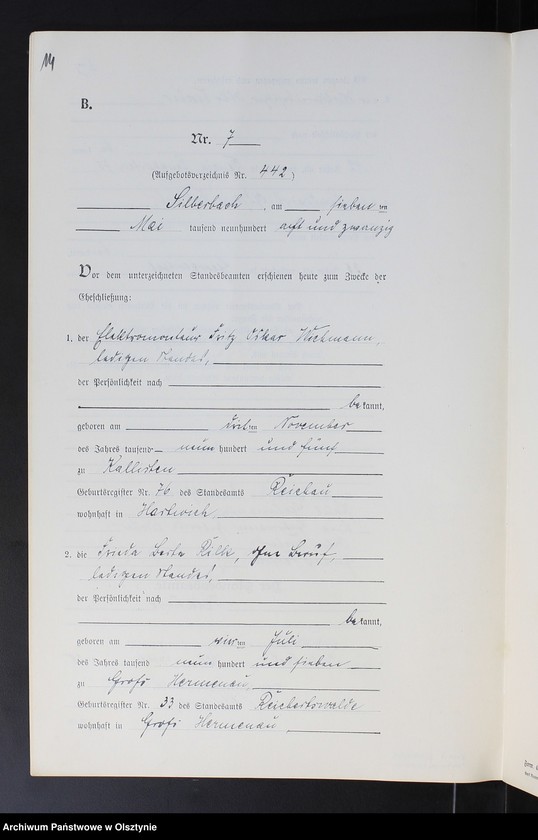 14
B.
Nr. 7
(Aufgebotsverzeichnis Nr. 442)
Silberbach, am sieben ten
Mai tausend neunhundert acht und zwanzig
Vor dem unterzeichneten Standesbeamten erschienen heute zum Zwecke der
Eheschließung:
1. der Elektromonteur Fritz Oskar Wichmann,
ledigen Standes,
der Persönlichkeit nach
be kannt,
geboren am ten November
des Jahres tausend neun hundert und fünf
zu Kallisten
Geburtsregister Nr. 76 des Standesamts Reichau
wohnhaft in
2. die Frieda Berta, ohne Beruf,
ledigen Standes,
der Persönlichkeit nach
be kannt,
geboren am vier ten Juli
des Jahres tausend neun hundert und sieben
zu Groß Hermenau,
Geburtsregister Nr. 33 des Standesamts Reichertswalde
wohnhaft in Groß Hermenau,
Archiwum Państwowe w Olsztynie